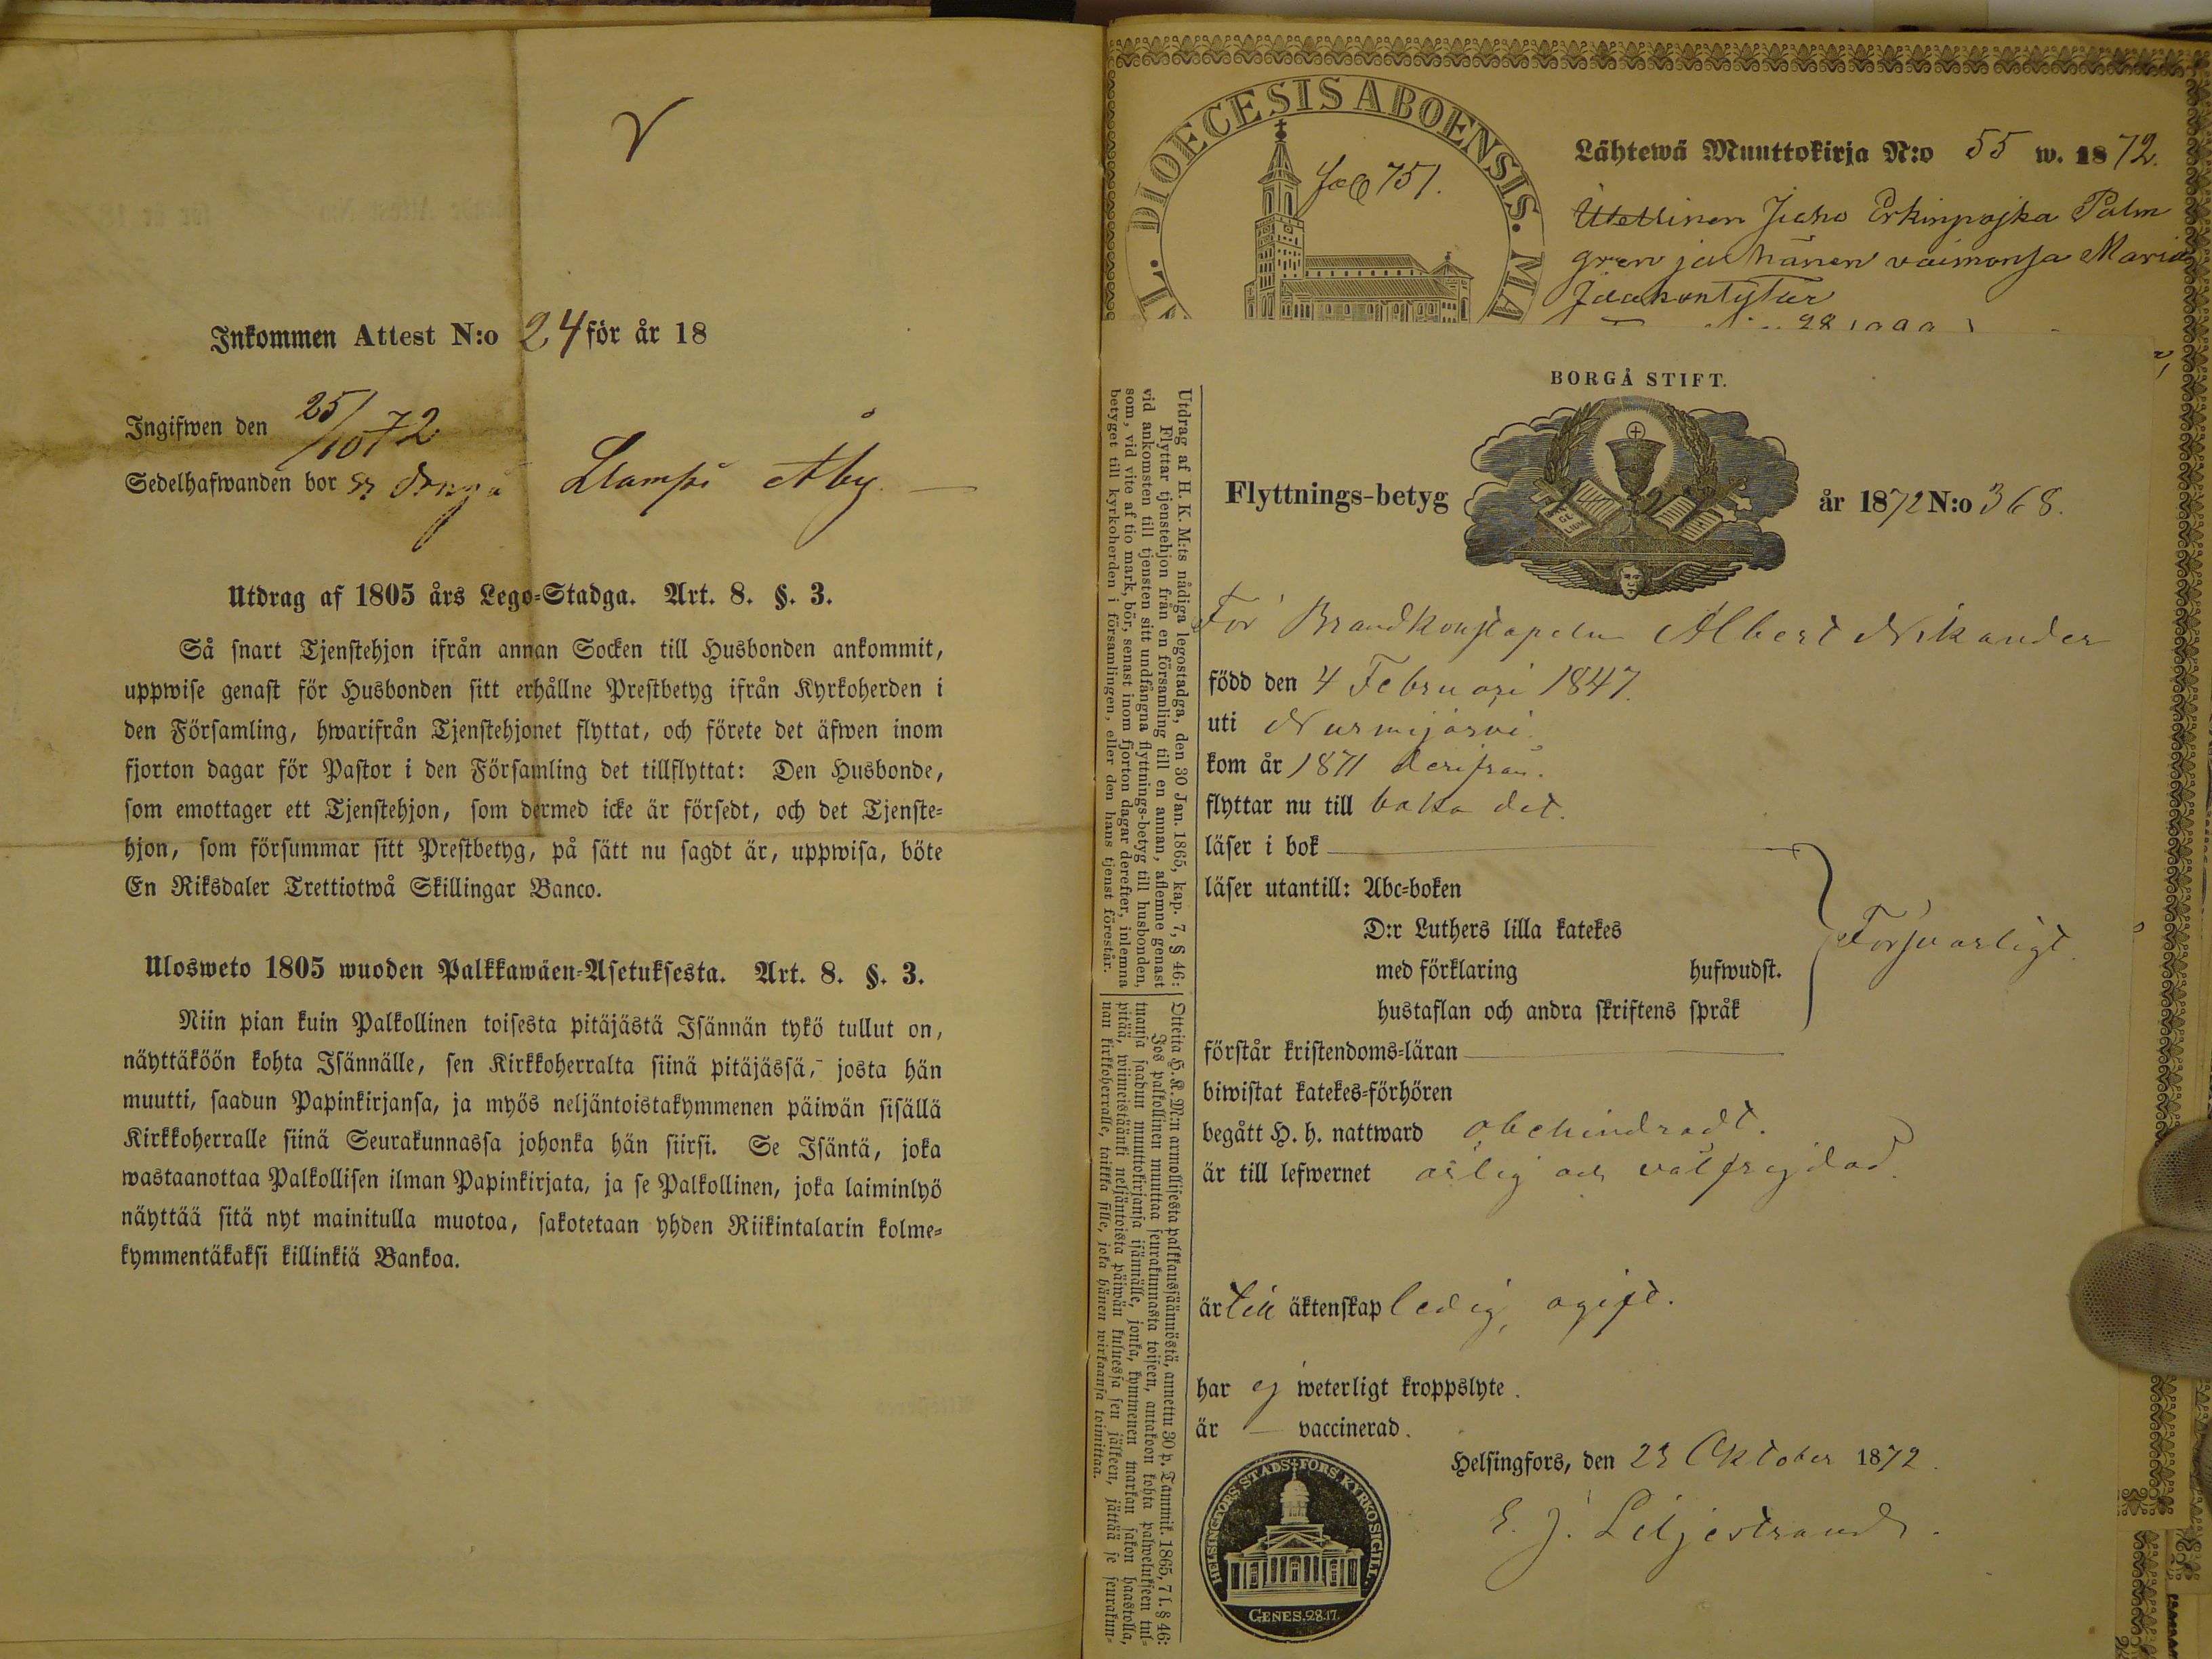 V
Inkommen Attest N:o 24 för år 18
Ingifwen den 25/10 72
Sedelhafwanden bor Åby.
Utdrag af 1805 års Lego-Stadga. Art. 8. §. 3.
Så snart Tjenstehjon ifrån annan Socken till Husbonden ankommit,
uppwise genast för Husbonden sitt erhållne Prestbetyg ifrån Kyrkoherden i
den Församling, hwarifrån Tjenstehjonet flyttat, och förete det äfwen inom
fjorton dagar för Pastor i den Församling det tillflyttat: Den Husbonde,
som emottager ett Tjenstehjon, som dermed icke är försedt, och det Tjenste-
hjon, som försummar sitt Prestbetyg, på sätt nu sagdt är, uppwisa, böte
En Riksdaler Trettiotwå Skillingar Banco.
Ulosweto 1805 wuoden Palkkawäen-Asetuksesta. Art. 8. §. 3.
Niin pian kuin Palkollinen toisesta pitäjästä Isännän tykö tullut on,
näyttäköön kohta Isännälle, sen Kirkkoherralta siinä pitäjässä, josta hän
muutti, saadun Papinkirjansa, ja myös neljäntoistakymmenen päiwän sisällä
Kirkkoherralle siinä Seurakunnassa johonka hän siirsi. Se Isäntä, joka
wastaanottaa Palkollisen ilman Papinkirjata, ja se Palkollinen, joka laiminlyö
näyttää sitä nyt mainitulla muotoa, sakotetaan yhden Riikintalarin kolme-
kymmentäkaksi killinkiä Bankoa.
DIOECESIS ABOENSIS. MA
751.
Lähtewä Muuttokirja N:o 55 w. 1872.
Itellinen Juho Erkinpojka Palm
gren ja hänen vaimonsa Maria
Jaakontytär
BORGÅ STIFT.
Flyttnings-betyg år 1872 N:o 368.
EVAN
GE
LIUM
För Brandkonstapeln Albert Nikander
född den 4 Februari 1847.
uti Nurmijärvi.
kom år 1871 derifrån.
flyttar nu till baka dit.
läser i bok
läser utantill: Abc-boken
D:r Luthers lilla katekes
med förklaring hufwudst.
hustaflan och andra skriftens språk
Försvarligt.
förstår kristendoms-läran
biwistat katekes-förhören
begått H. h. nattward obehindradt.
är till lefwernet ärlig och välfrejdad.
är till äktenskap ledig, ogift.
har ej weterligt kroppslyte.
är — vaccinerad.
Helsingfors, den 23 Oktober 1872.
E. J. Liljestrand.
HELSINGFORS STADS FÖRS. KYRKOSIGILL.
GENES. 28. 17.
Utdrag af H. K. M:ts nådiga legostadga, den 30 Jan. 1865, kap. 7, § 46:
Flyttar tjenstehjon från en församling till en annan, aflemne genast
vid ankomsten till tjensten sitt undfångna flyttnings-betyg till husbonden,
som, vid vite af tio mark, bör, senast inom fjorton dagar derefter, inlemna
betyget till kyrkoherden i församlingen, eller den hans tjenst förestår.
Otteita H. K. M:n armollisesta palkkaussäännöstä, annettu 30 p. Tammik. 1865, 7 l. § 46:
Jos palkollinen muuttaa seurakunnasta toiseen, antakoon kohta palwelukseen tul-
tuansa saadun muuttokirjansa isännälle, jonka, kymmenen markan sakon haastolla,
pitää, wiimeistäänki neljäntoista päiwän kuluessa sen jälkeen, jättää se seurakun-
nan kirkkoherralle, taikka sille, joka hänen wirkaansa toimittaa.